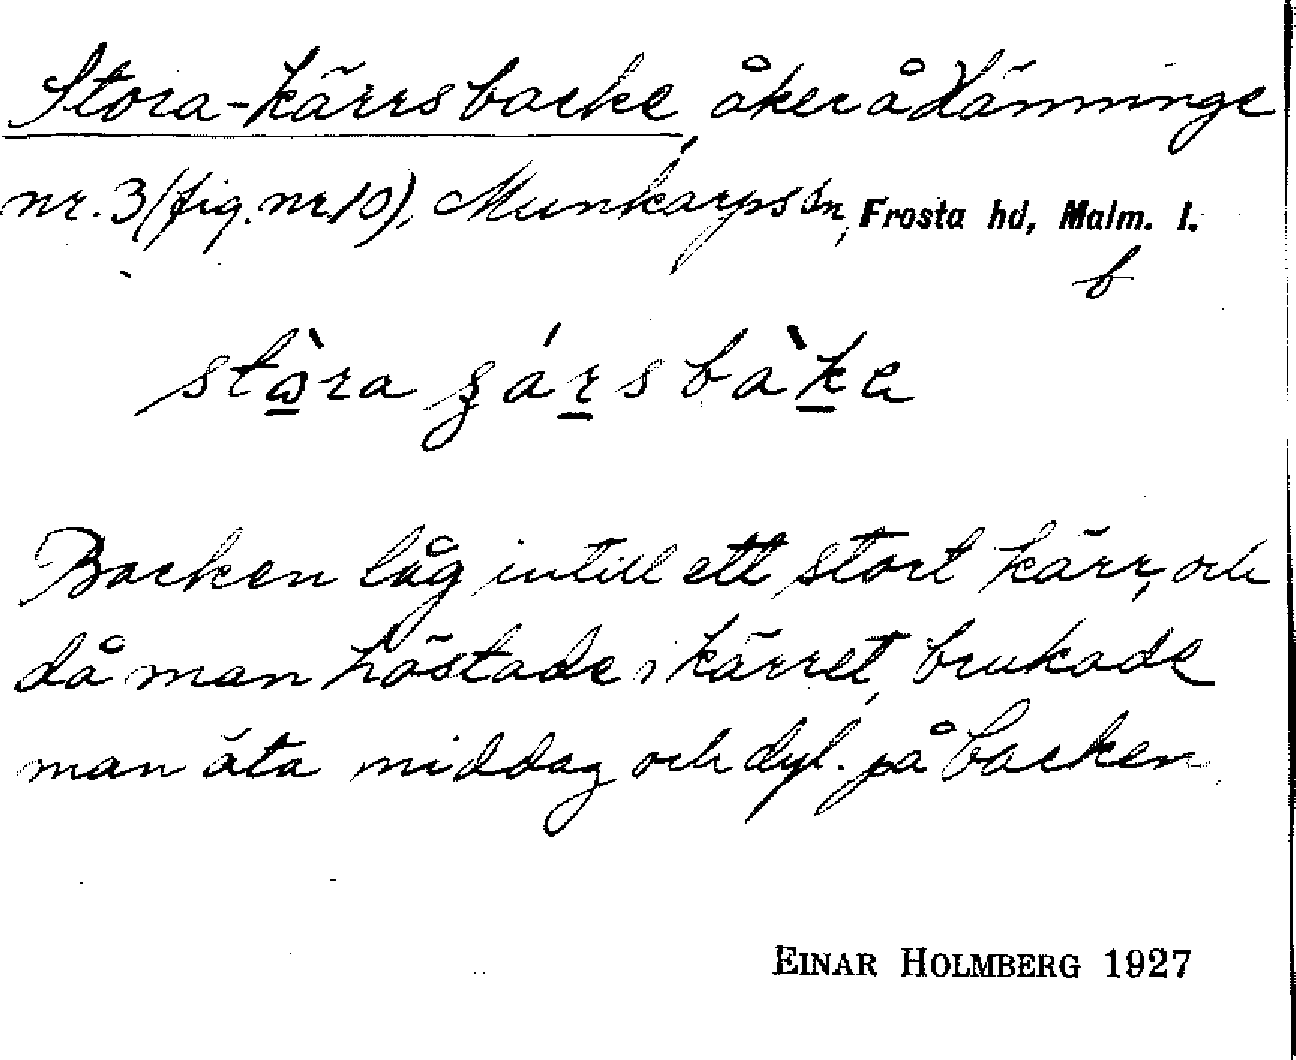 Stora-kärrsbacke, åker å Hänninge
nr. 3 (fig. nr 10), Munkarps sn, Frosta hd, Malm. l.
b
Backen låg intill ett stort kärr, och
då man höstade i kärret, brukade
man äta middag och dyl. på backen.
EINAR HOLMBERG 1927